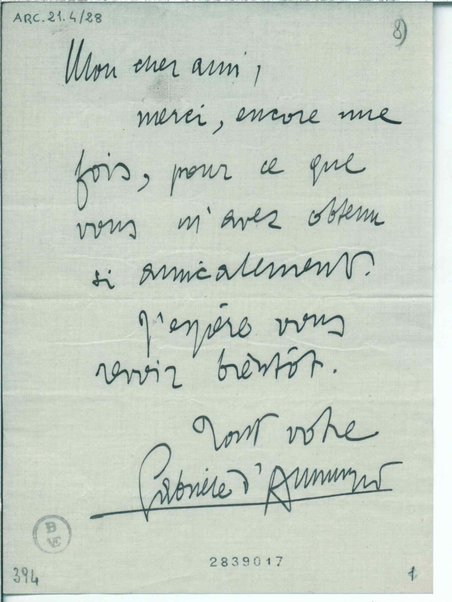 ARC. 21. 4/28
8)
Mon cher ami,
merci, encore une
fois, pour ce que
vous m'avez obtenu
si amicalement.
J'espère vous
revoir bientôt.
Tout votre
Gabriele d'Annunzio
B
VE
2839017
394
1